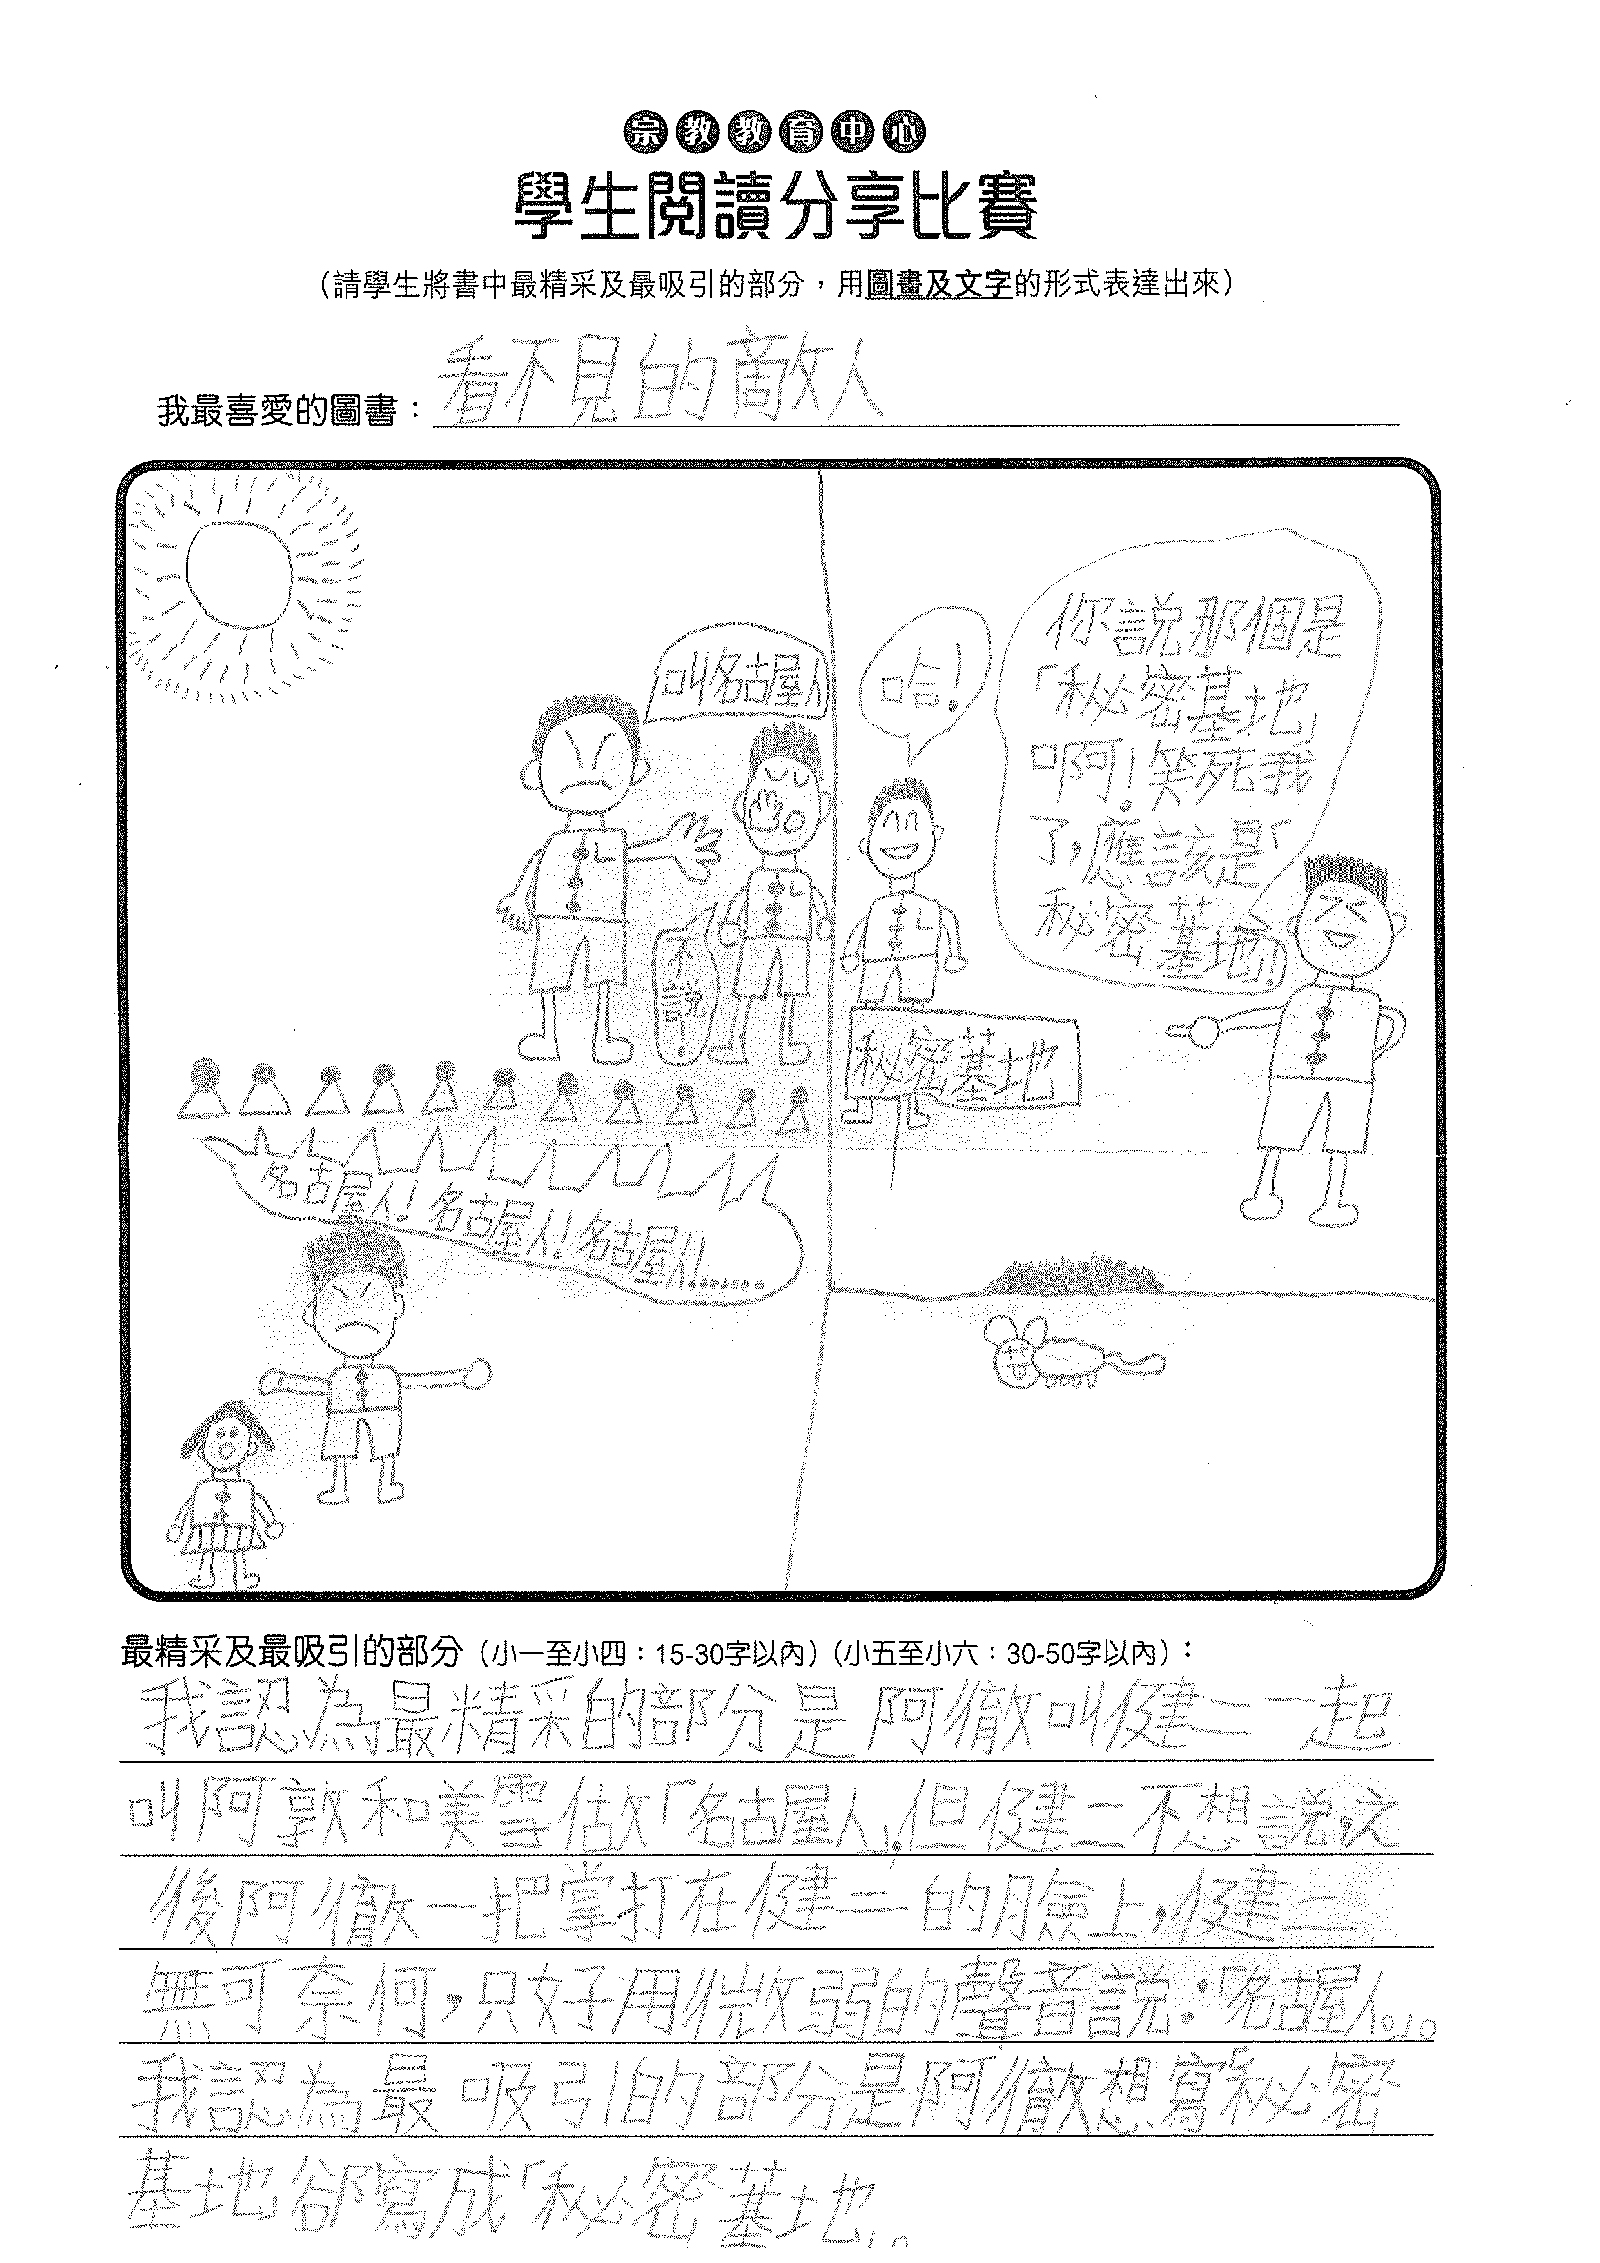 宗教教育中心
學生閱讀分享比賽
（請學生將書中最精采及最吸引的部分，用圖畫及文字的形式表達出來）
我最喜愛的圖書：看不見的敵人
叫名古屋人
不說!
名古屋人!名古屋人!名古屋人!.......
哈!
你說那個是
「秘密基地」
啊!笑死我
了,應該是「
秘密基地」!
秘密基地
最精采及最吸引的部分（小一至小四：15-30字以內）（小五至小六：30-50字以內）：
我認為最精采的部分是阿徹叫健二一起
叫阿敦和美雪做「名古屋人」,但健二不想說,之
後阿徹一把掌打在健二的臉上,健二
無可奈何,只好用微弱的聲音說:「名古屋人。」。
我認為最吸引的部分是阿徹想寫「秘密
基地卻寫成「秘密基地」。